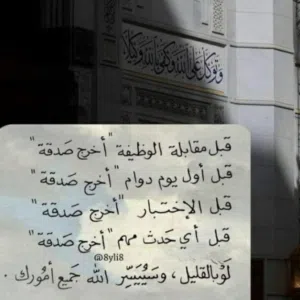 وتوكل على الله وكفى بالله وكيلا
قبل مقابلة الوظيفة "أخرج صَدقة"
قبل أول يوم دوام "أخرج صَدقة"
قبل الإختبار "أخرج صَدقة"
قبل أي حَدث مهم "أخرج صَدقة"
@8yli8
لَو بالقليل ، وسَيُيَسِّر الله جَميع أمُورك .